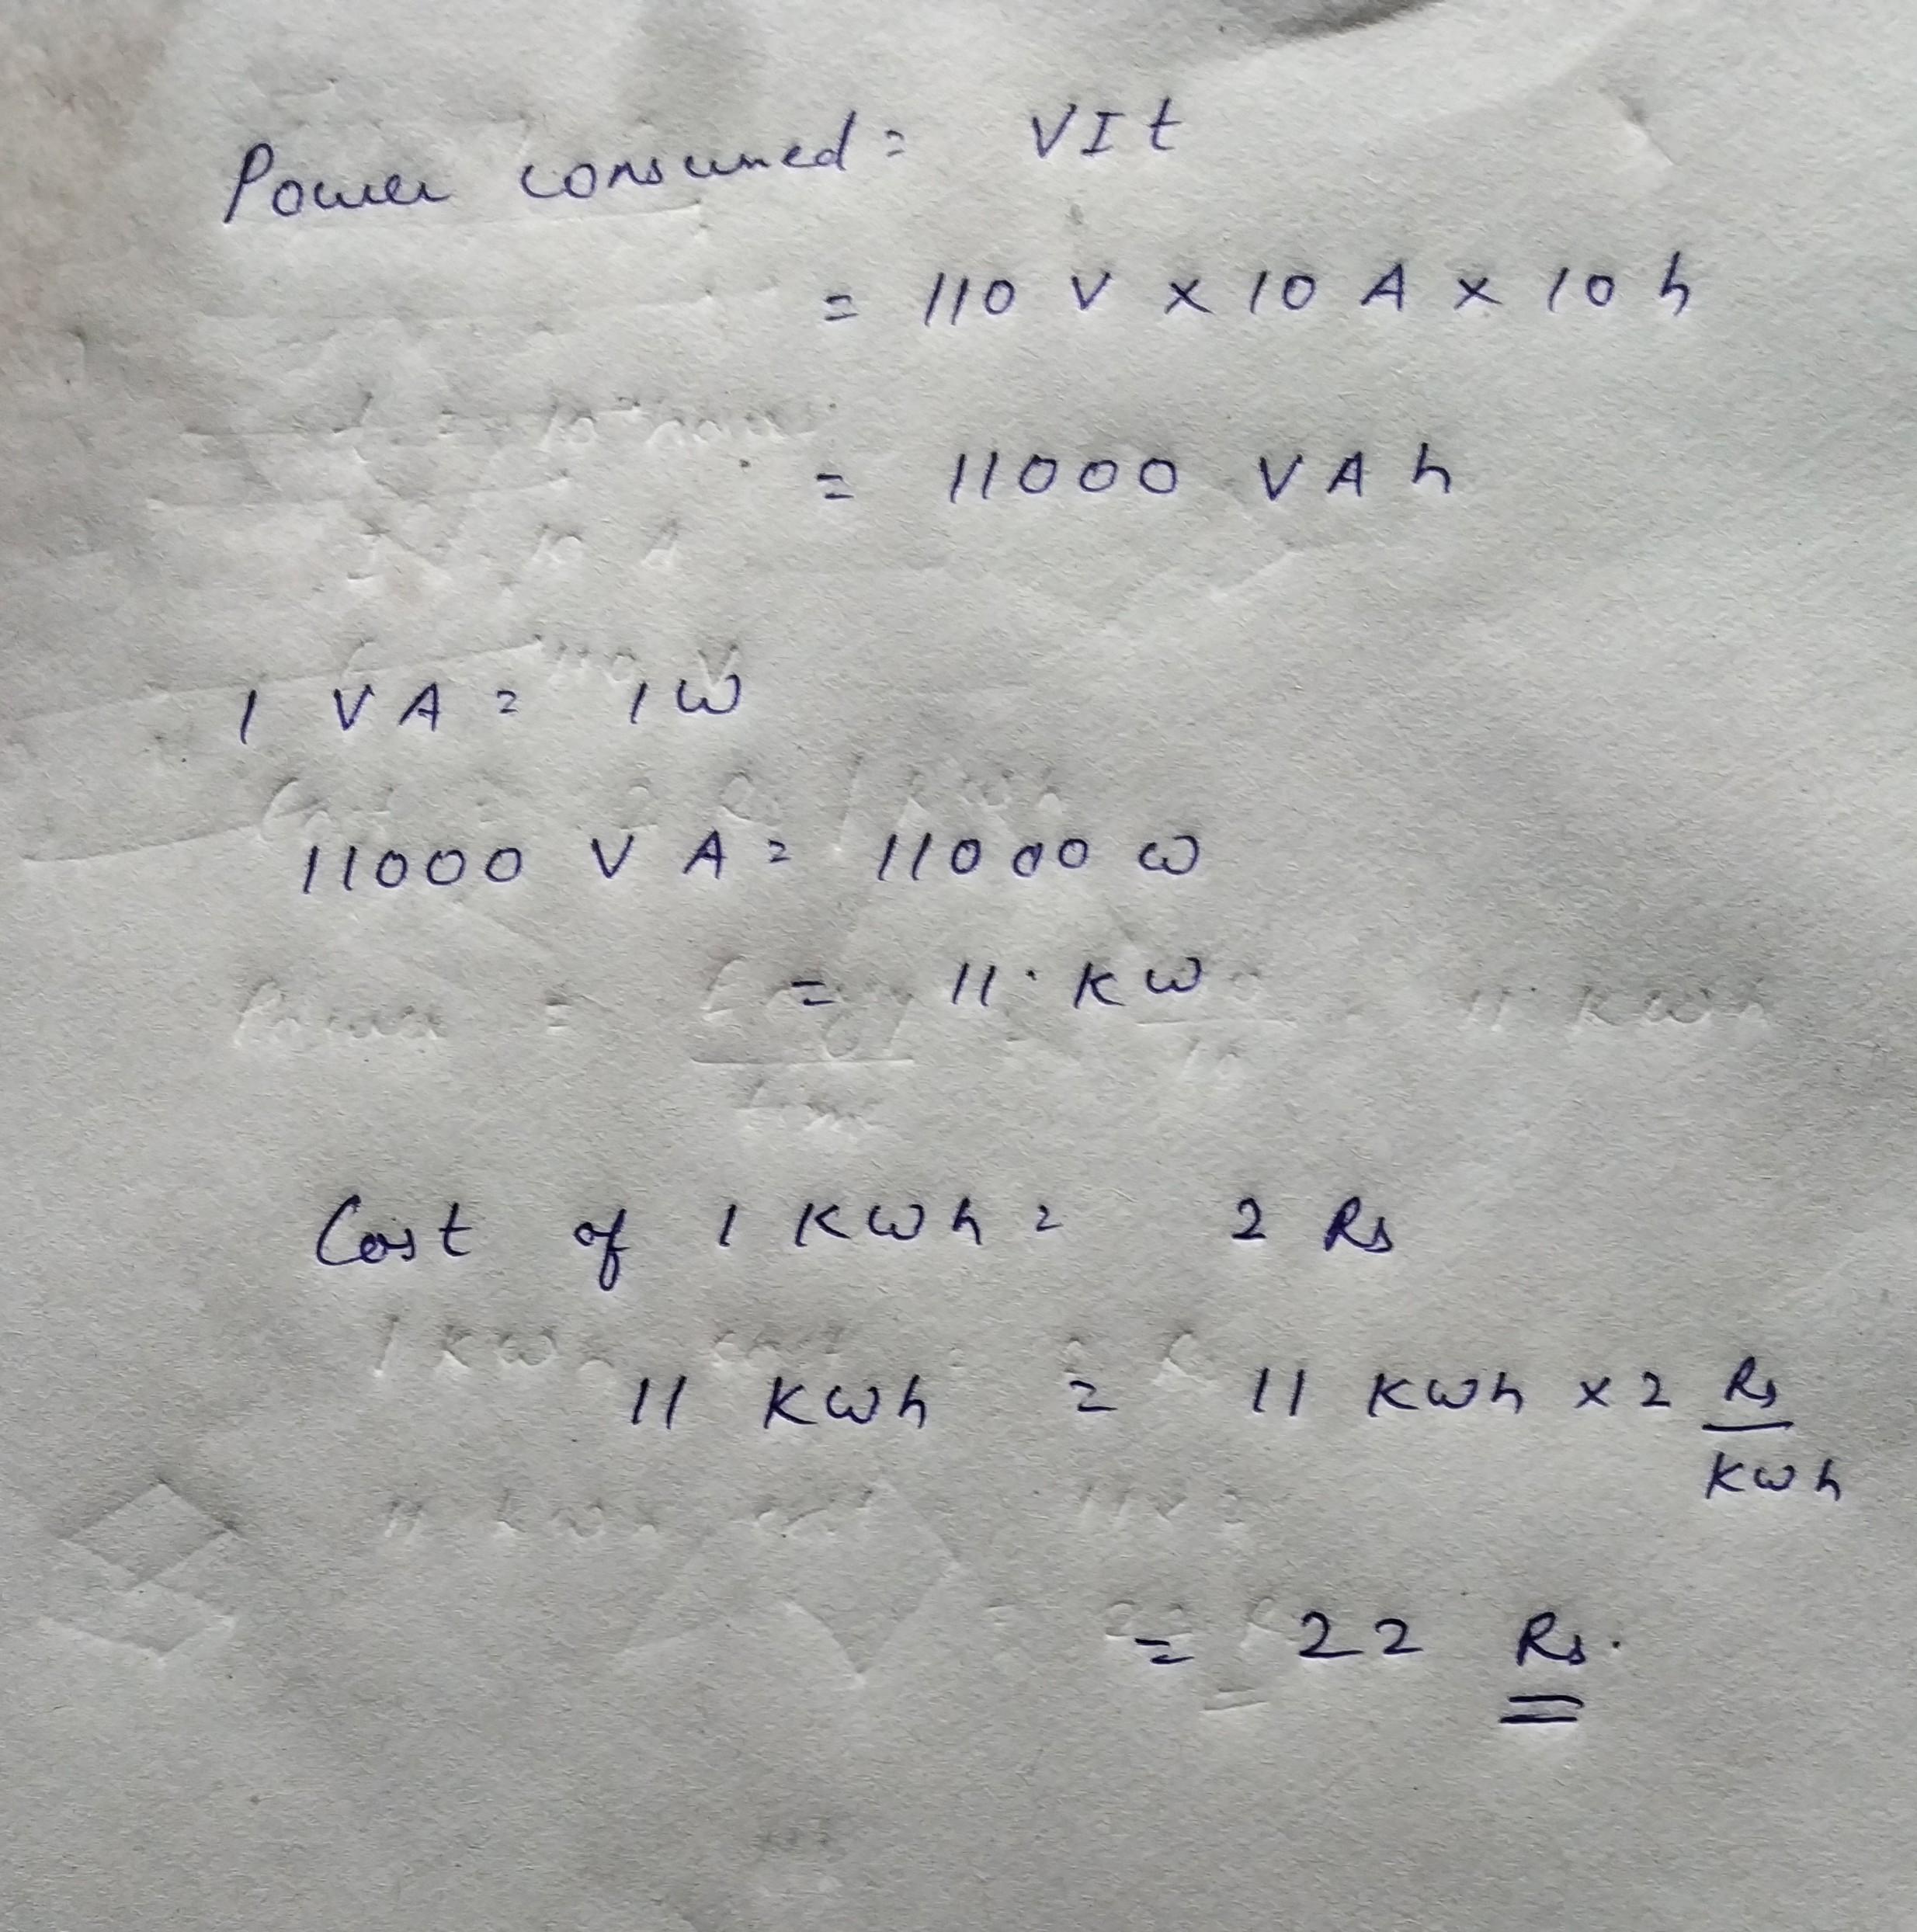 Power consumed = VIt
= 110 V x 10 A x 10 h
= 11000 VAh
1 VA = 1W
11000 VA = 11000 W
= 11 KW
Cost of 1 KWh = 2 Rs
11 KWh = 11 KWh x 2 Rs
KWh
= 22 Rs.